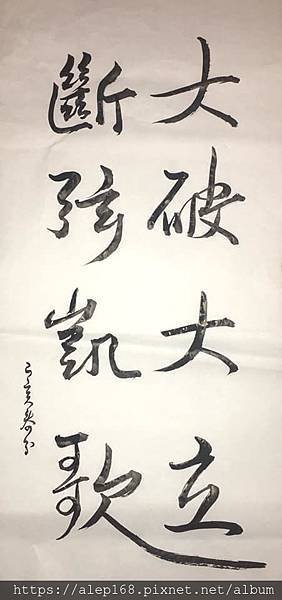 大破大立
斷弦凱歌
https://alep168.pixnet.net/album